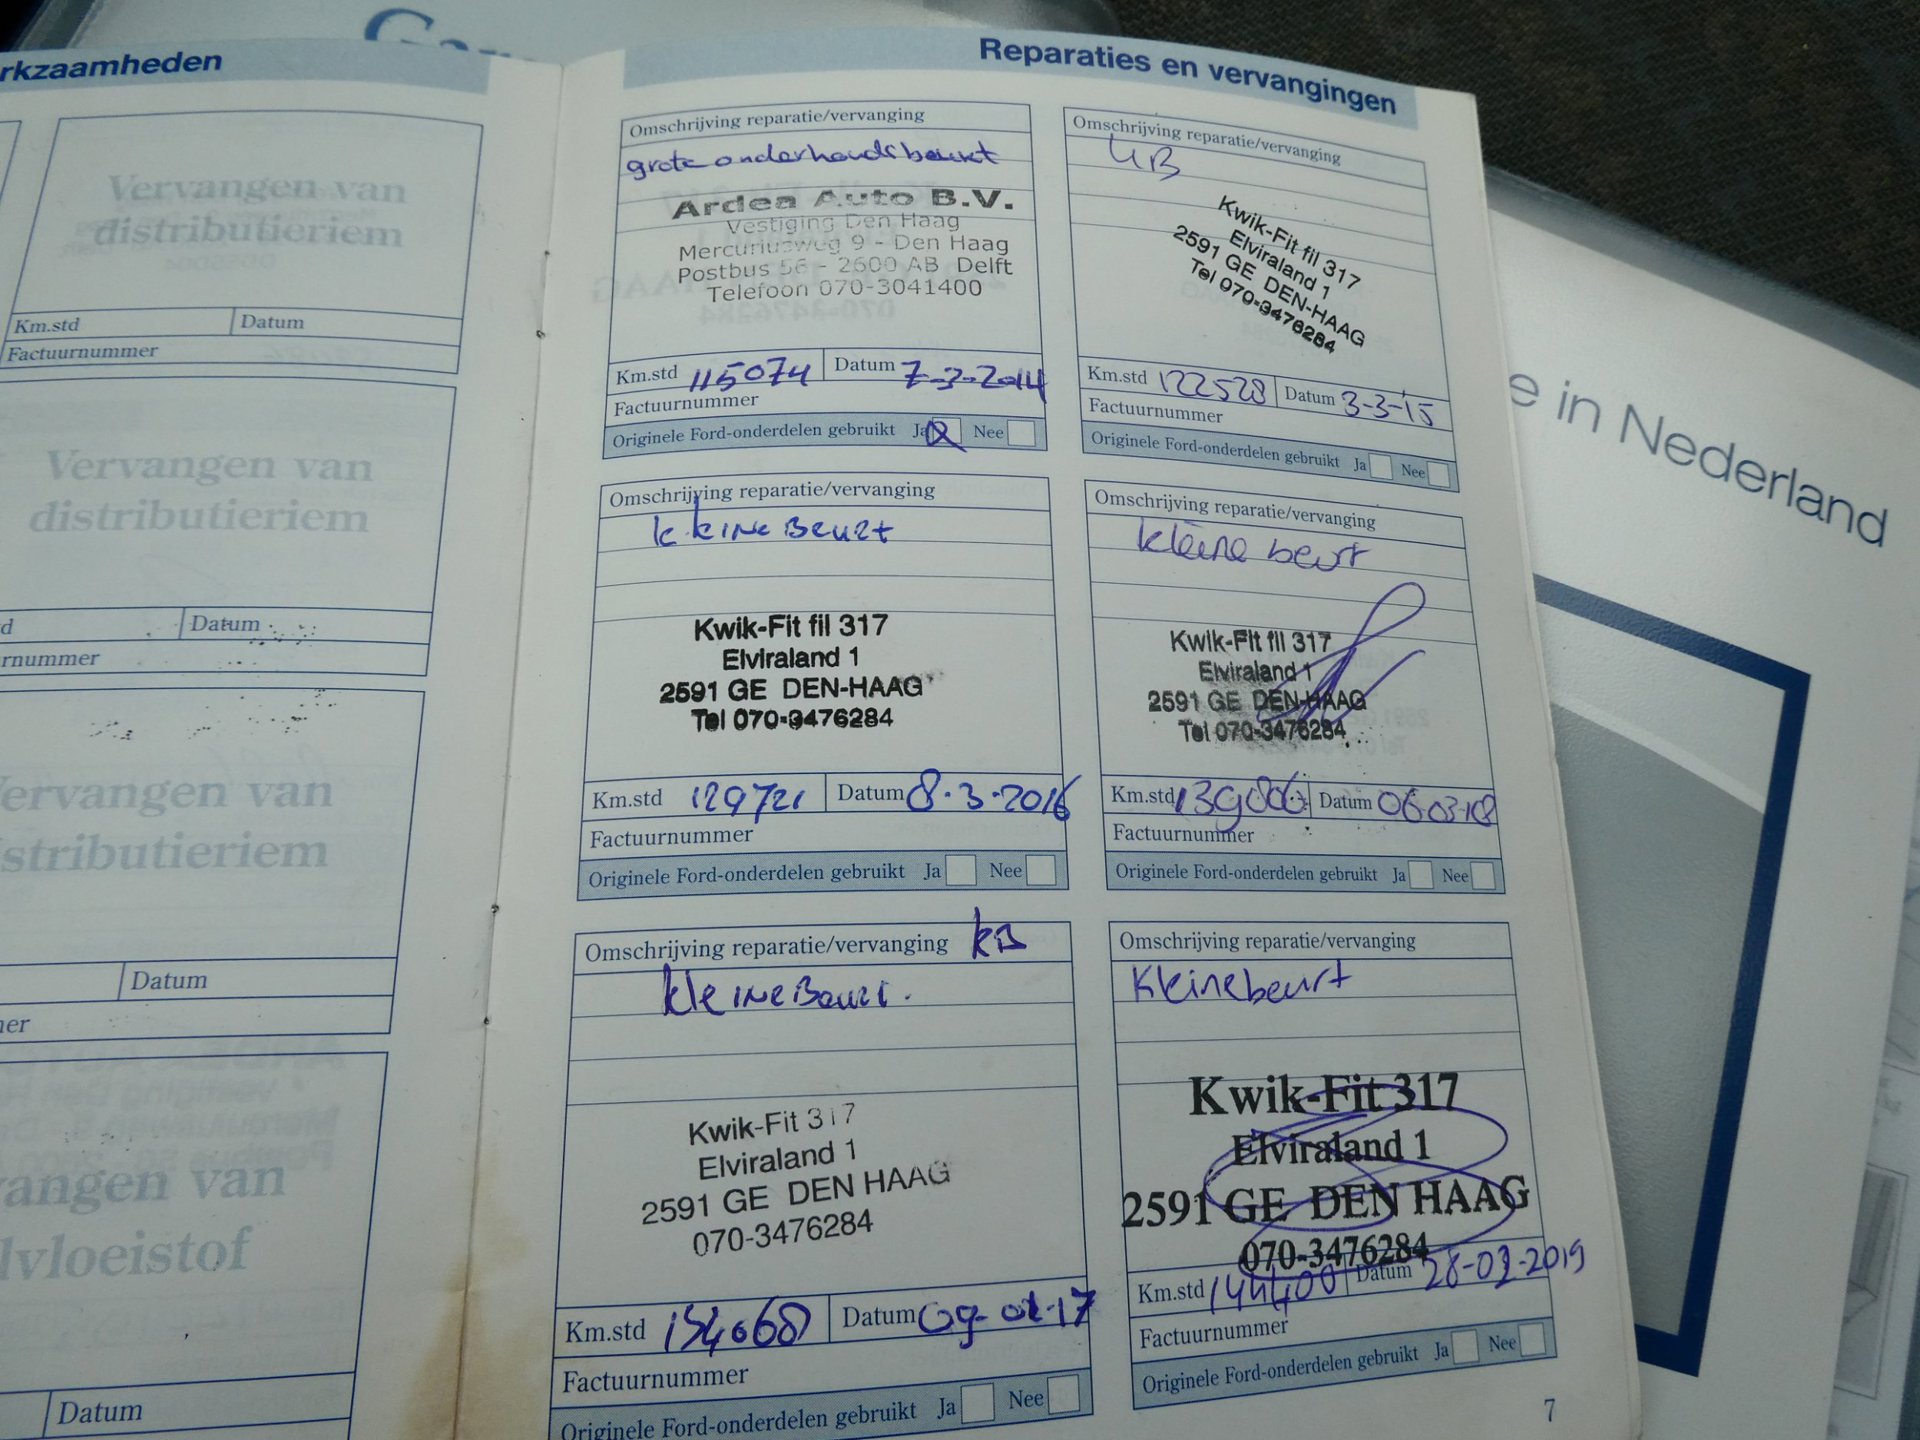 rkzaamheden
Vervangen van
distributieriem
Km.std
Datum
Factuurnummer
Vervangen van
distributieriem
d
Datum
rnummer
ervangen van
stributieriem
Datum
er
angen van
lvloeistof
Datum
Reparaties en vervangingen
Omschrijving reparatie/vervanging
grote onderhoudsbeurt
Ardea Auto B.V.
Vestiging Den Haag
Mercuriusweg 9 - Den Haag
Postbus 56 - 2600 AB Delft
Telefoon 070-3041400
Km.std 115074 Datum 7-3-2014
Factuurnummer
Originele Ford-onderdelen gebruikt Ja Nee
Omschrijving reparatie/vervanging
Kwik-Fit fil 317
Elviraland 1
2591 GE DEN-HAAG
Tel 070-3476284
Km.std 122528 Datum 3-3-15
Factuurnummer
Originele Ford-onderdelen gebruikt Ja Nee
Omschrijving reparatie/vervanging
Beurt
Kwik-Fit fil 317
Elviraland 1
2591 GE DEN-HAAG
Tel 070-3476284
Km.std 129721 Datum 8-3-2016
Factuurnummer
Originele Ford-onderdelen gebruikt Ja Nee
Omschrijving reparatie/vervanging
kleine beurt
Kwik-Fit fil 317
Elviraland 1
2591 GE DEN-HAAG
Tel 070-3476284
Km.std Datum 06-03-18
Factuurnummer
Originele Ford-onderdelen gebruikt Ja Nee
Omschrijving reparatie/vervanging KB
kleine Beurt.
Kwik-Fit 317
Elviraland 1
2591 GE DEN HAAG
070-3476284
Km.std Datum
Factuurnummer
Originele Ford-onderdelen gebruikt Ja Nee
Omschrijving reparatie/vervanging
Kleine beurt
Kwik-Fit 317
Elviraland 1
2591 GE DEN HAAG
070-3476284
Km.std 144400 Datum
Factuurnummer
Originele Ford-onderdelen gebruikt Ja Nee
7
e in Nederland